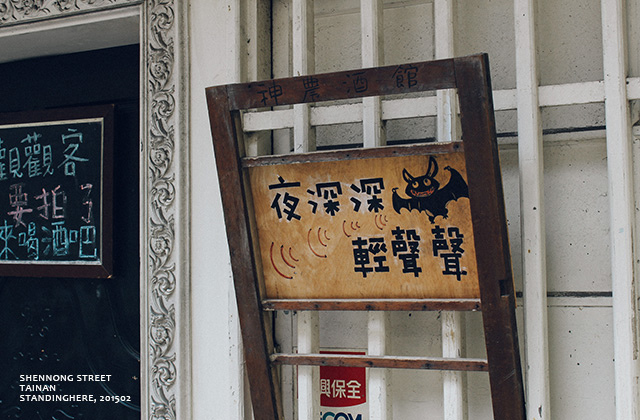 神農酒館
夜深深
輕聲聲
觀觀客
要拍了
來喝酒吧
興保全
.COM
SHENNONG STREET
TAINAN
STANDINGHERE, 201502